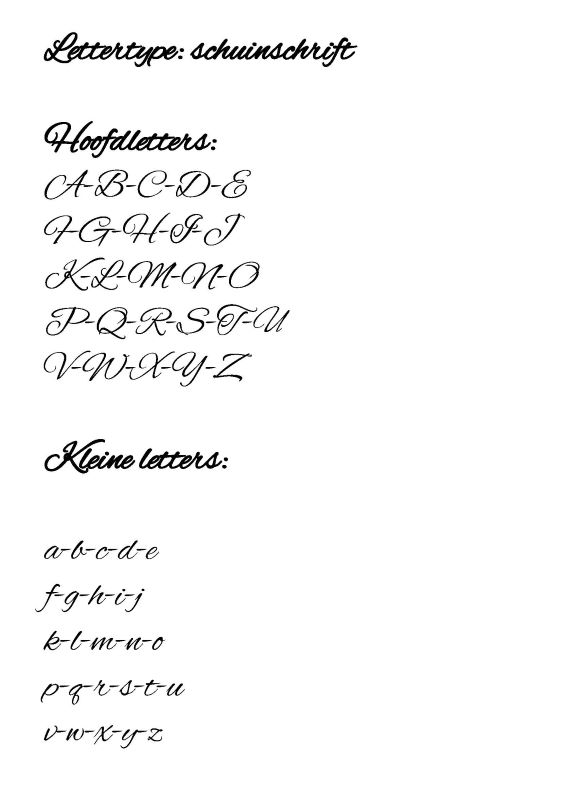 Lettertype: schuinschrift
Hoofdletters:
A-B-C-D-E
F-G-H-I-J
K-L-M-N-O
P-Q-R-S-T-U
V-W-X-Y-Z
Kleine letters:
a-b-c-d-e
f-g-h-i-j
k-l-m-n-o
p-q-r-s-t-u
v-w-x-y-z